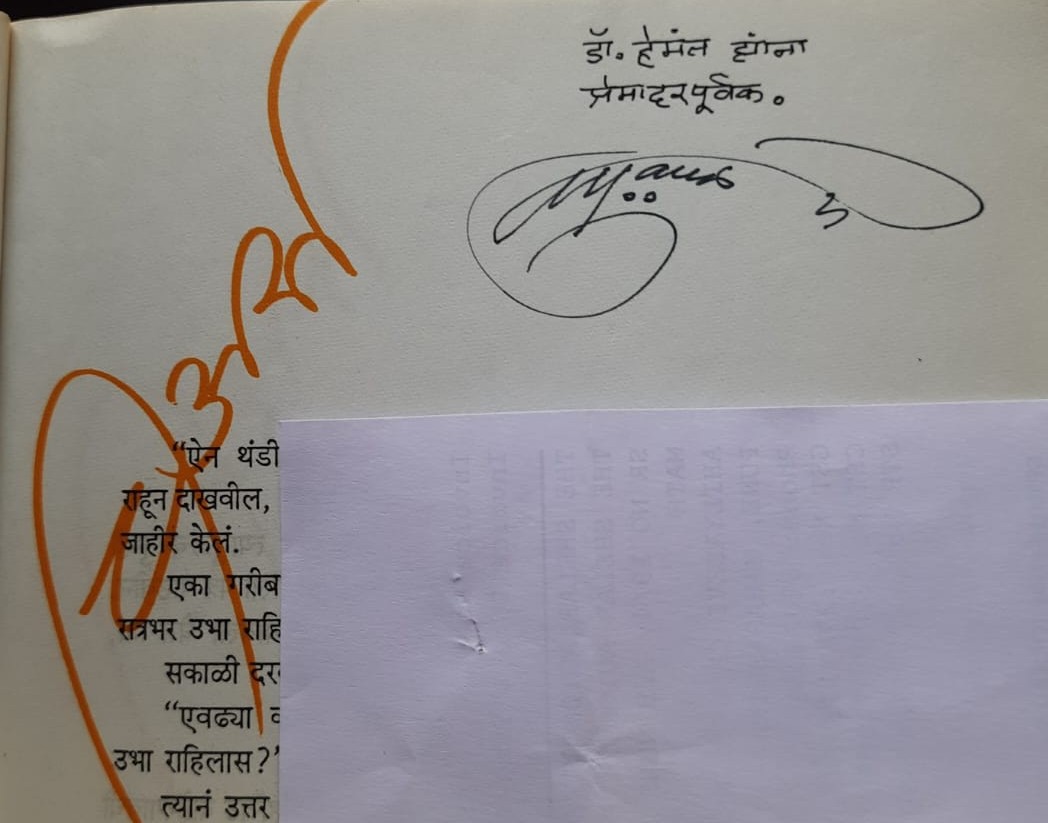 डॉ. हेमंत यांना
प्रेमादरपूर्वक.
“ऐन थंडी
राहून दाखवील,
जाहीर केलं.
एका गरीब
रात्रभर उभा राहि
सकाळी दर
“एवढ्या
उभा राहिलास?”
त्यानं उत्तर